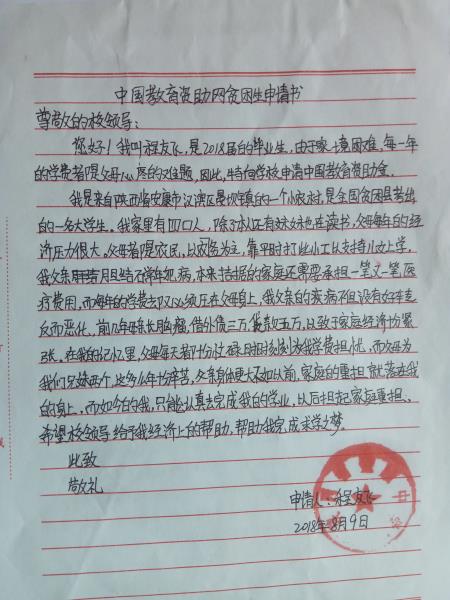 中国教育资助网贫困生申请书
尊敬的校领导:
您好!我叫程友飞,是2018届的毕业生,由于家境困难,每一年
的学费都是父母心灵的难题,因此,特向学校申请中国教育资助金。
我是来自陕西省安康市汉滨区晏坝镇的一个小农村,是全国贫困县考出
的一名大学生。我家里有四口人,除了本人还有妹妹也在读书,父母每年的经
济压力很大。父母都是农民,以务农为主,靠平时打些小工以支持儿女上学,
我父亲患结石常年犯病,本来拮据的家庭还需要承担一笔又一笔医
疗费用,而每年的学费也压在父母身上,我父亲的疾病不但没有好转
反而恶化,前几年母亲长脑瘤,借外债三万,贷款五万,以致于家庭经济十分紧
张,在我的记忆里,父母每天都十分忙碌,时时刻刻为我学费担忧,而父母为
我们兄妹两个,这多么年十分辛苦,父亲身体更大不如从前,家庭的重担就落在我
的身上,而如今的我,只能认真去完成我的学业,以后担起家庭重担,
希望校领导给予我经济上的帮助,帮助我完成求学之梦。
此致
敬礼
申请人:程友飞
2018年8月9日